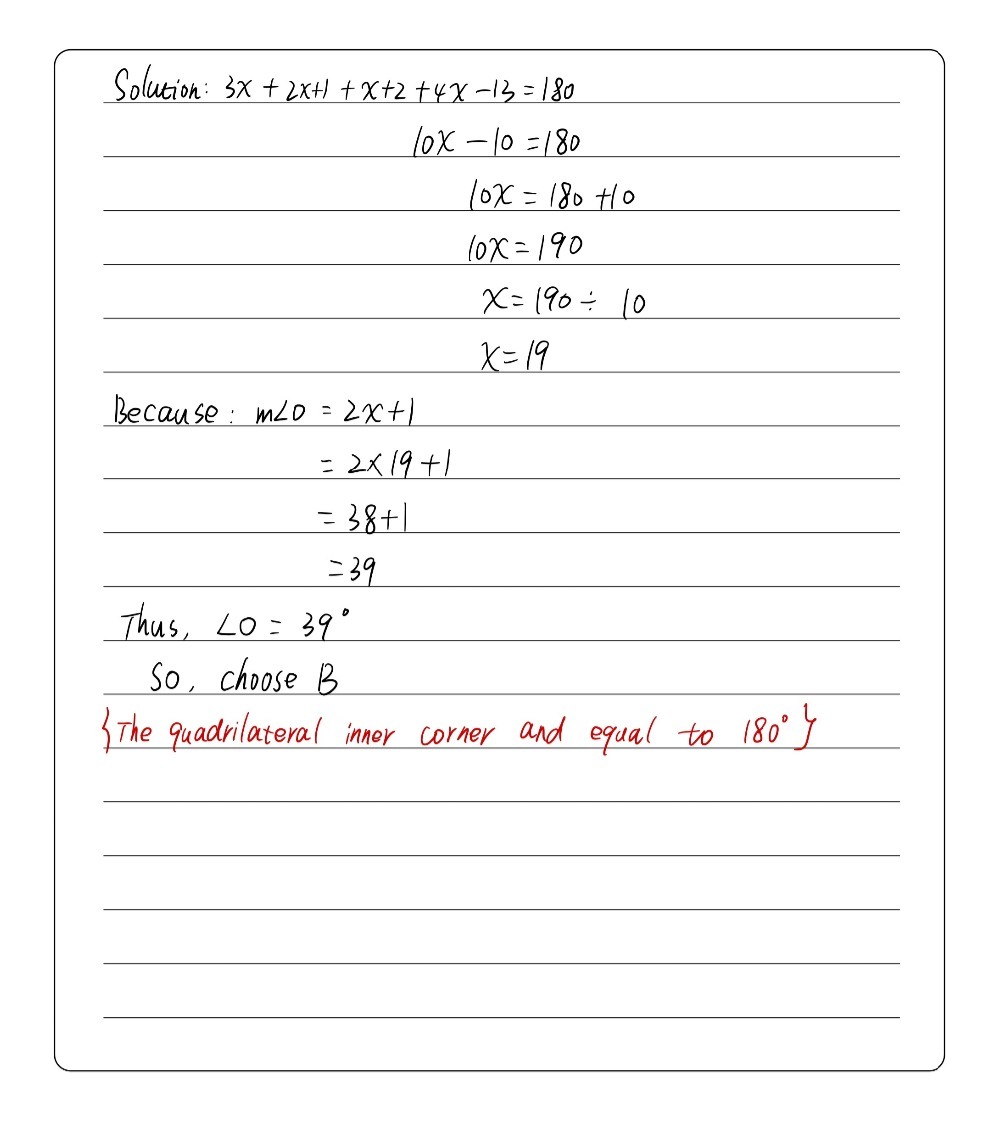 Solution: 3x + 2x+1 + x+2 + 4x -13 = 180
10x - 10 = 180
10x = 180 + 10
10x = 190
x = 190 ÷ 10
x = 19
Because: m∠O = 2x+1
= 2×19+1
= 38+1
= 39
Thus, ∠O = 39°
So, choose B
{The quadrilateral inner corner and equal to 180°}